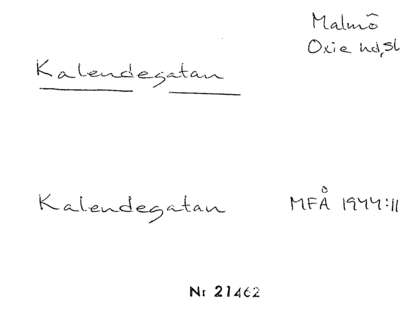 Malmö
Oxie hd, Sk
Kalendegatan
Kalendegatan MFÅ 1944:11
Nr 21462